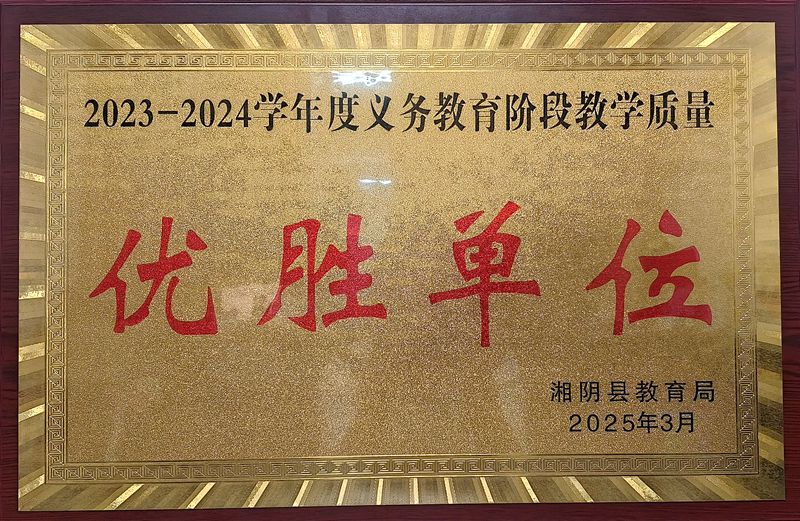 2023-2024学年度义务教育阶段教学质量
优胜单位
湘阴县教育局
2025年3月